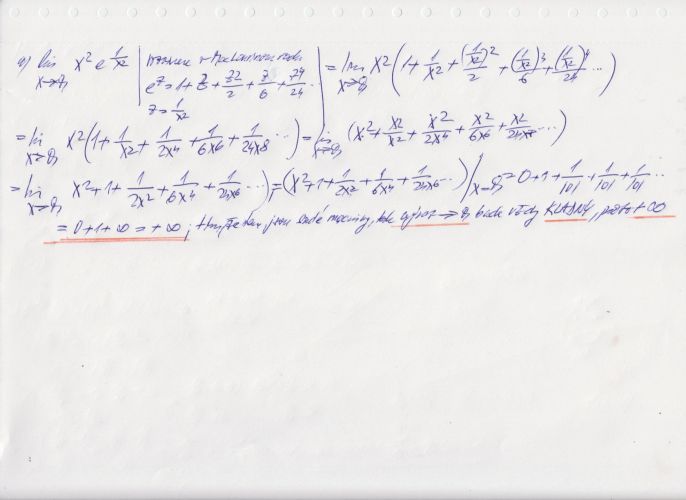 a) lim x→0 x² e^(1/x²) | rozvineme v Maclaurinovu řadu e^z = 1 + z + z²/2 + z³/6 + z⁴/24 ... z = 1/x² | = lim x→0 x² (1 + 1/x² + (1/x²)²/2 + (1/x²)³/6 + (1/x²)⁴/24 ...)
= lim x→0 x² (1 + 1/x² + 1/2x⁴ + 1/6x⁶ + 1/24x⁸ ...) = lim x→0 (x² + x²/x² + x²/2x⁴ + x²/6x⁶ + x²/24x⁸ ...)
= lim x→0 x² + 1 + 1/2x² + 1/6x⁴ + 1/24x⁶ ...) = (x² + 1 + 1/2x² + 1/6x⁴ + 1/24x⁶ ...) | x=0 = 0 + 1 + 1/|0| + 1/|0| + 1/|0| ...
= 0 + 1 + ∞ = + ∞ ; jsou sudé mocniny, tak výraz → 0 bude vždy KLADNÝ, proto + ∞